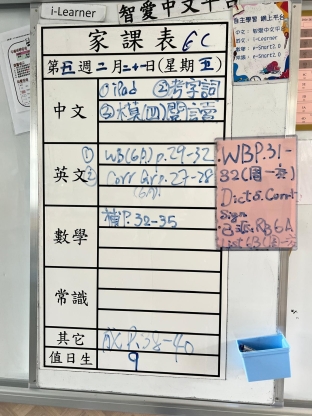 i-Learner
智愛中文平台
家課表 6C
第五週二月二十一日(星期五)
中文
① iPad ②考字詞
③模(四)閱讀
英文
① WB(6A) p.29-32
② Corr Gr p.27-28
(6A)
數學
補P.32-35
常識
其它
P.38-40
值日生
9
自主學習 網上平台
中文：智愛中文平台
英文：i-Learner
數學：e-Smart2.0
常識：e-Smart2.0
·WBP.31-
32(週一交)
Dict 5. Corr+
Sign